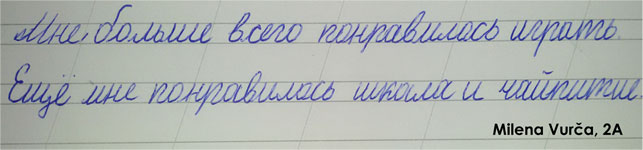 Мне больше всего понравилось играть.
Ещё мне понравилось школа и чайпитие.
Milena Vurča, 2A